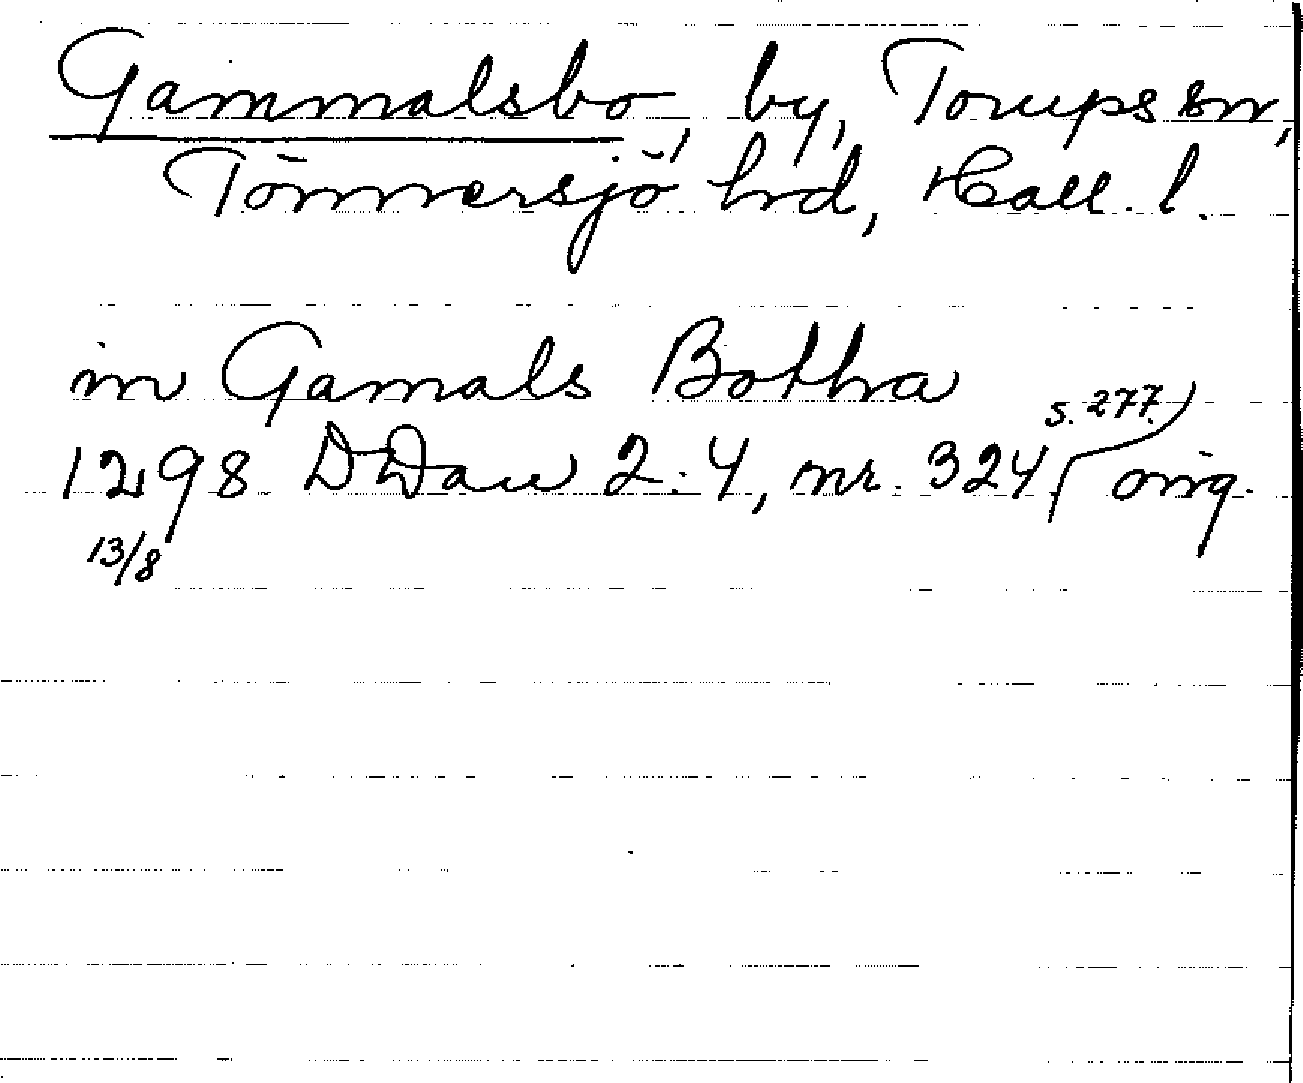 Gammalsbo, by, Torups sn,
Tönnersjö hd, Hall. l.
in Gamals Botha
1298 DDan 2:4, nr. 324, s. 277. orig.
13/8